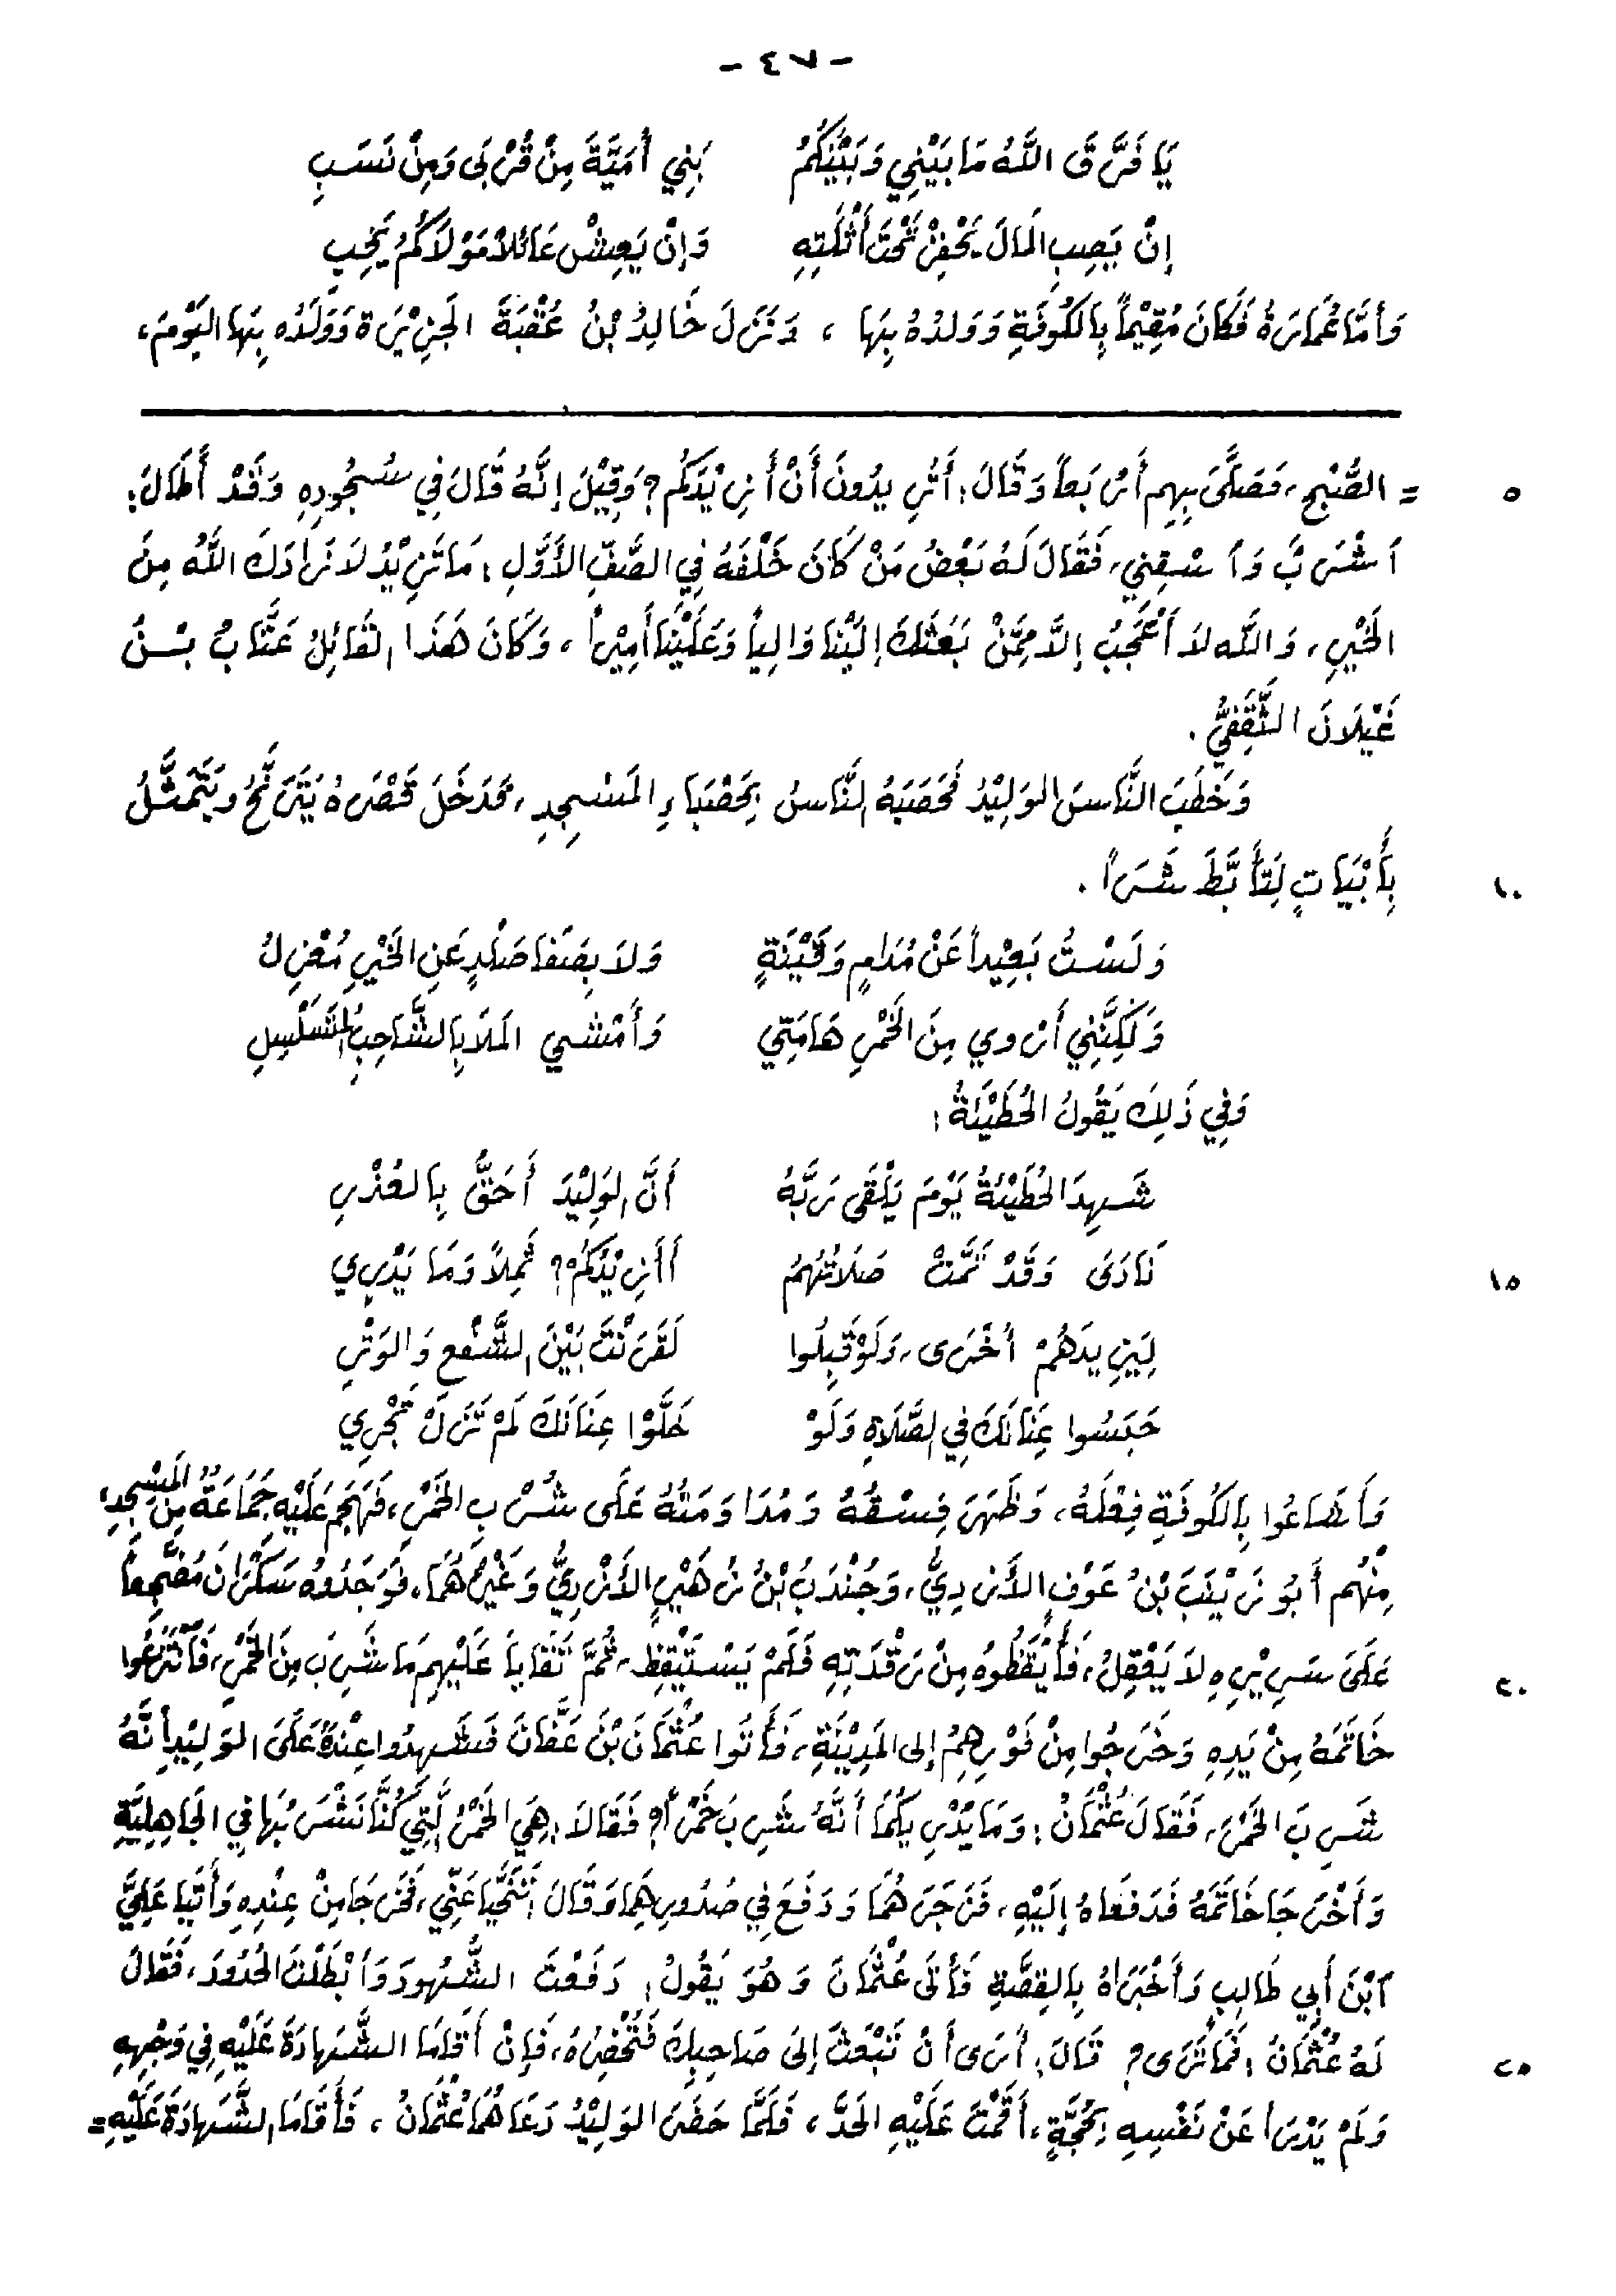 - ٤٧ -
يَا فَرَّقَ اللَّهُ مَا بَيْنِي وَبَيْنَكُمُ بَنِي أُمَيَّةَ مِنْ قُرْبَى وَمِنْ نَسَبِ
إِنْ يَصِبِ المَالَ يَحْفِزْ تَحْتَ أَثْلَتِهِ وَإِنْ يَعِشْ عَائلاً مَوْلاَكُمُ يَخِبِ
وَأمَّا عُمَارَةُ فَكَانَ مُقِيْماً بِالكُوفَةِ وَوَلدُهُ بِهَا ، وَنَزَلَ خَالِدُ بْنُ عُقْبَةَ الجَزِيْرَةَ وَوَلَدُه بِهَا اليَوْمَ،
= الصُّبْحِ، فَصَلَّى بِهِم أَرْبَعاً وَقَالَ: أَتُرِيدُونَ أَنْ أَزِيْدَكُم؟ وَقِيْلَ إِنَّهُ قَالَ فِي سُجُودِهِ وَقَدْ أَطَالَ: ٥
آشْرَبْ وَآسْقِنِي، فَقَالَ لَهُ بَعْضُ مَنْ كَانَ خَلْفَهُ فِي الصَّفِّ الأَوَّلِ: مَا تَزِيْدُ لاَ زَادَكَ اللَّهُ مِنَ
الخَيْرِ، وَاللَّه لاَ أَعْجَبُ إلاَّ مِمَّنْ بَعَثَكَ إلَيْنَا وَالِياً وَعَلَيْنَا أَمِيْراً ، وَكَانَ هَذَا القَائِلُ عَتَّابُ بْنُ
غَيْلاَنَ الثَّقَفِيُّ .
وَخَطَبَ النَّاسَ الوَلِيْدُ فَحَصَبَهُ النَّاسُ بِحَصْبَاءِ المَسْجِدِ، فَدَخَلَ قَصْرَهُ يَتَرَنَّحُ وَيَتَمَثَّلُ
بِأَبْيَاتٍ لِتَأَبَّطَ شَرّاً . ١٠
وَلَسْتُ بَعِيْداً عَنْ مُدَامٍ وَقَيْنَةٍ وَلاَ بِصَفَا صَلْدٍ عَنِ الخَيْرِ مُعْزِلُ
وَلَكِنَّنِي أَرْوِي مِنَ الخَمْرِ هَامَتِي وَأَمْشي المَلاَ بِالشَّاحِبِ المُتَسَلْسِلِ
وَفِي ذَلِكَ يَقُولُ الحُطَيْئَةُ :
شَهِدَ الحُطَيْئَةُ يَوْمَ يَلْقَى رَبَّهُ أَنَّ الوَلِيْدَ أَحَقُّ بِالعُذْرِ
نَادَى وَقَدْ تَمَّتْ صَلاَتُهُمُ أَأَزِيْدُكُمْ؟ ثَمِلاً وَمَا يَدْرِي ١٥
لِيَزِيدَهُمْ أُخْرَى، وَلَوْ قَبِلُوا لَقَرَنْتَ بَيْنَ الشَّفْعِ وَالوَتْرِ
حَبَسُوا عِنَانَكَ فِي الصَّلاَةِ وَلَوْ خَلَّوْا عِنَانَكَ لَمْ تَزَلْ تَجْرِي
وَأَشَاعُوا بِالكُوفَةِ فِعْلَهُ، وَظَهَرَ فِسْقُهُ وَمُدَاوَمَتُهُ عَلَى شُرْبِ الخَمْرِ، فَهَجَم عَلَيْهِ جَمَاعَةٌ مِنَ المَسْجِدِ،
مِنْهُم أَبُو زَيْنَبَ بْنُ عَوْفٍ الأَزْدِيُّ، وَجُنْدَبُ بْنُ زُهَيْرٍ الأَزْدِيُّ وَغَيْرُهُمَا، فَوَجَدُوهُ سَكْرَانَ مُضْجِعاً
عَلَى سَرِيْرِهِ لاَ يَعْقِلُ، فَأَيْقَظُوهُ مِنْ رَقْدَتِهِ فَلَمْ يَسْتَيْقِظ، ثُمَّ تَقَايأَ عَلَيْهِم مَا شَرِبَ مِنَ الخَمْرِ، فَآنْتَزَعُوا ٢٠
خَاتَمَهُ مِنْ يَدِهِ وَخَرَجُوا مِنْ فَوْرِهِمُ إلى المَدِيْنَةِ، فَأَتَوا عُثْمَانَ بْنَ عَفَّانَ فَشَهِدُوا عِنْدَهُ عَلَى الوَلِيْدِ أَنَّهُ
شَرِبَ الخَمْرَ، فَقَالَ عُثْمَانُ: وَمَا يُدْرِيكُمَا أَنَّهُ شَرِبَ خَمْراً؟ فَقَالاَ: هِيَ الخَمْرُ الَّتِي كُنَّا نَشْرَبُهَا فِي الجَاهِلِيَّةِ
وَأَخْرَجَا خَاتَمَهُ فَدَفَعَاهُ إلَيْهِ، فَزَجَرَهُمَا وَدَفَعَ فِي صُدُورِهِمَا وَقَالَ: تَنَحَّيَا عَنِّي، فَخَرَجَا مِنْ عِنْدِهِ وَأَتَيَا عَلِيَّ
آبْنَ أَبِي طَالِبٍ وَأَخْبَرَاهُ بِالقِصَّةِ فَأَتَى عُثْمَانَ وَهُوَ يَقُولُ: دَفَعْتَ الشُّهودَ وَأَبْطَلْتَ الحُدُودَ، فَقَالَ
لَهُ عُثْمَانُ: فَمَا تَرَى؟ قَالَ: أَرَى أَنْ تَبْعَثَ إلَى صَاحِبِكَ فَتُحْضِرَهُ، فَإِنْ أَقَامَا الشَّهَادَةَ عَلَيْهِ فِي وَجْهِهِ ٢٥
وَلَمْ يَدْرَأ عَنْ نَفْسِهِ بِحُجَّةٍ، أَقَمْتَ عَلَيْهِ الحَدَّ، فَلَمَّا حَضَرَ الوَلِيْدُ دَعَاهُمَا عُثْمَانُ، فَأَقَامَا الشَّهَادَةَ عَلَيْهِ=